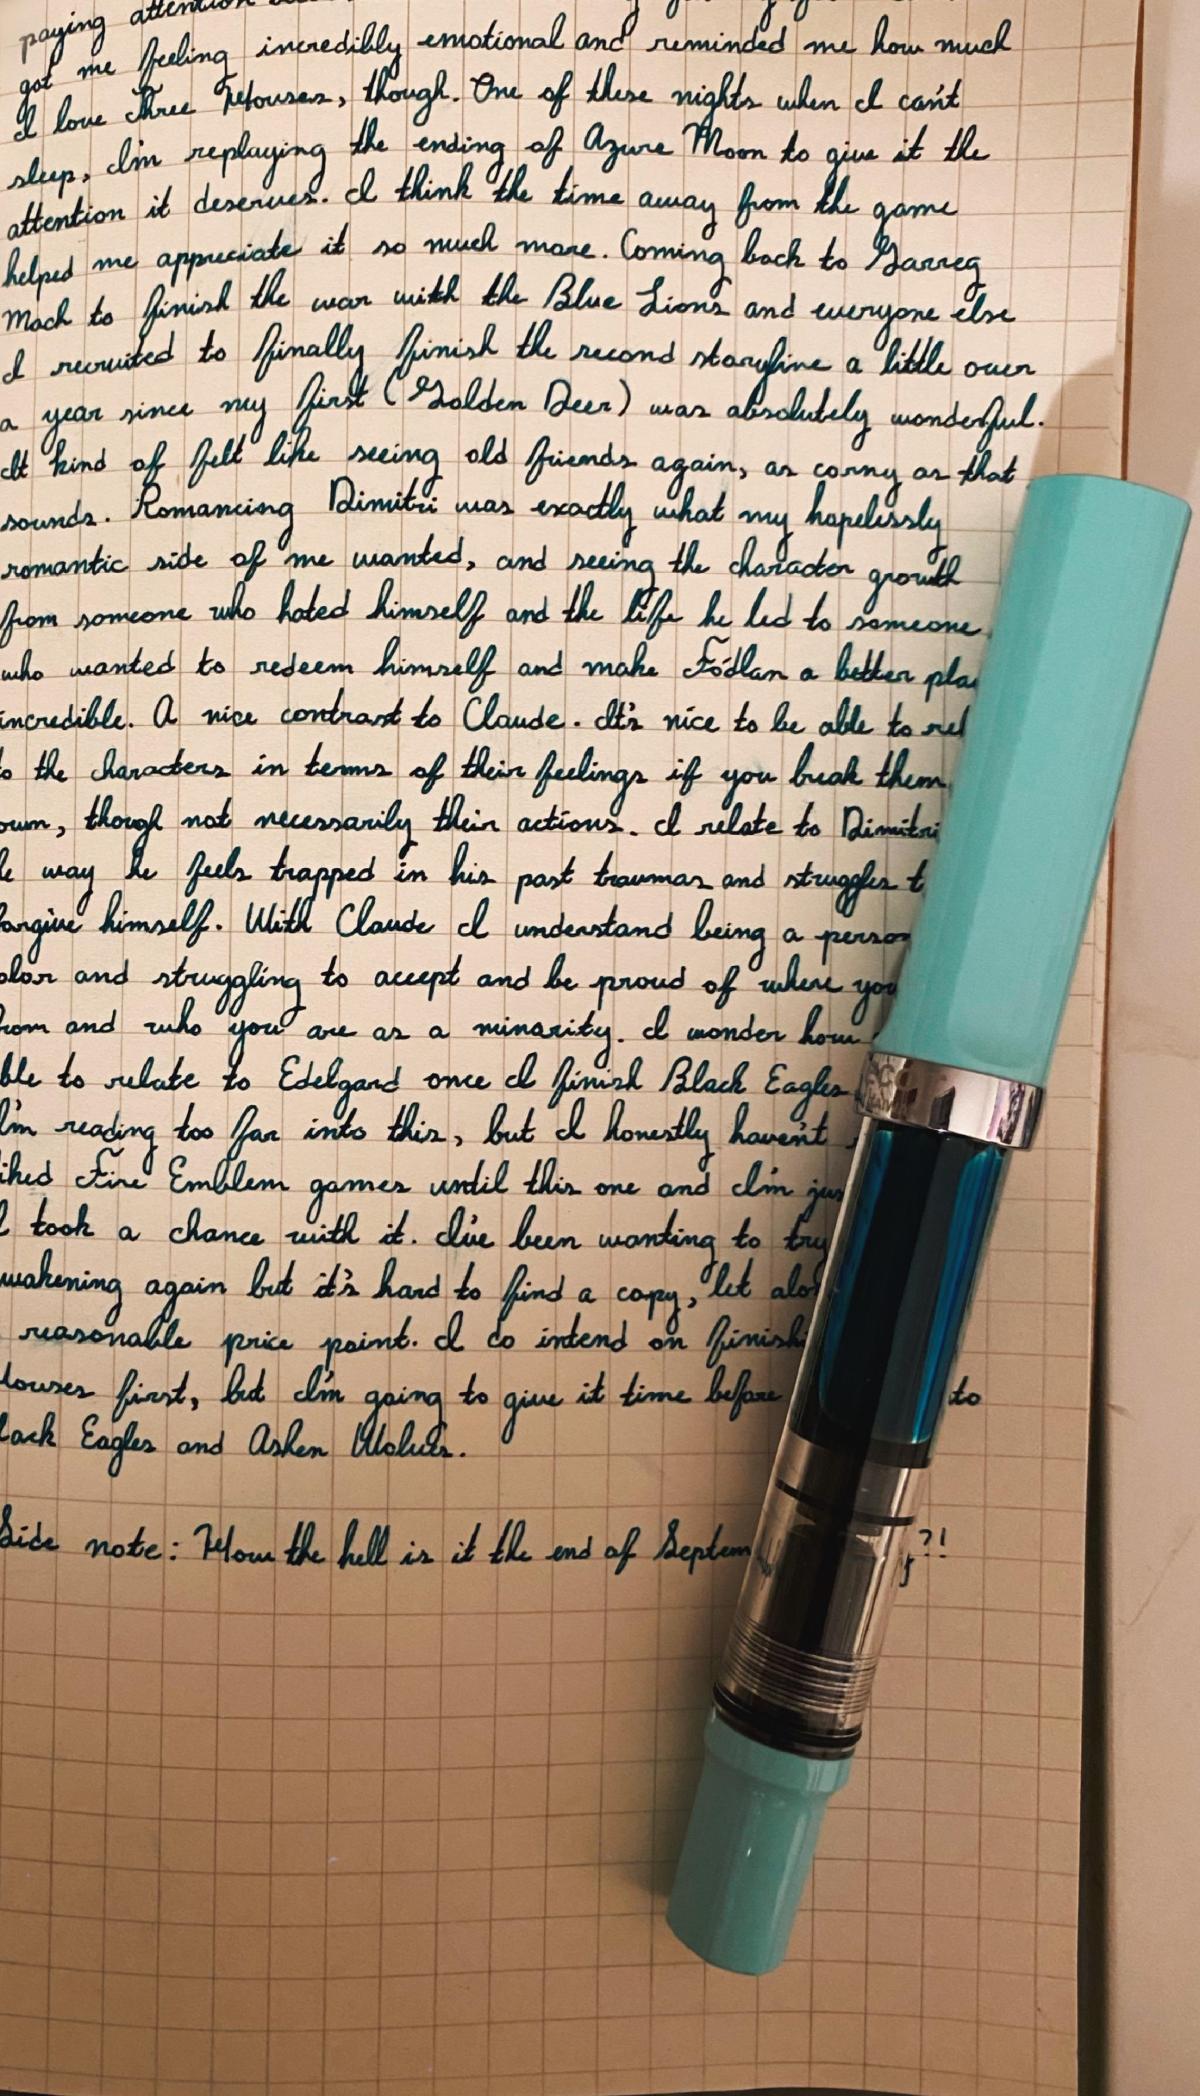 paying attention
got me feeling incredibly emotional and reminded me how much
I love Three Houses, though. One of these nights when I can't
sleep, I'm replaying the ending of Azure Moon to give it the
attention it deserves. I think the time away from the game
helped me appreciate it so much more. Coming back to Garreg
Mach to finish the war with the Blue Lions and everyone else
I recruited to finally finish the second storyline a little over
a year since my first (Golden Deer) was absolutely wonderful.
It kind of felt like seeing old friends again, as corny as that
sounds. Romancing Dimitri was exactly what my hopelessly
romantic side of me wanted, and seeing the character growth
from someone who hated himself and the life he led to someone
who wanted to redeem himself and make Fódlan a better pla
incredible. A nice contrast to Claude. It's nice to be able to rel
to the characters in terms of their feelings if you break them
own, though not necessarily their actions. I relate to Dimitri
e way he feels trapped in his past traumas and struggles t
forgive himself. With Claude I understand being a person
olor and struggling to accept and be proud of where you
from and who you are as a minority. I wonder how
ble to relate to Edelgard once I finish Black Eagles
I'm reading too far into this, but I honestly haven't
iked Fire Emblem games until this one and I'm jus
I took a chance with it. I've been wanting to try
wakening again but it's hard to find a copy, let alon
reasonable price point. I do intend on finishi
Houses first, but I'm going to give it time before to
lack Eagles and Ashen Wolves.
Side note: How the hell is it the end of Septem y?!